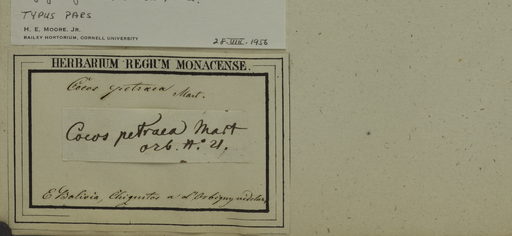 TYPUS PARS
H. E. MOORE, JR.
BAILEY HORTORIUM, CORNELL UNIVERSITY
28.VIII.1956
HERBARIUM REGIUM MONACENSE.
Cocos petraea Mart.
Cocos petraea Mart
orb. N.º 21.
E Bolivia, Chiquitos a d'Orbigny